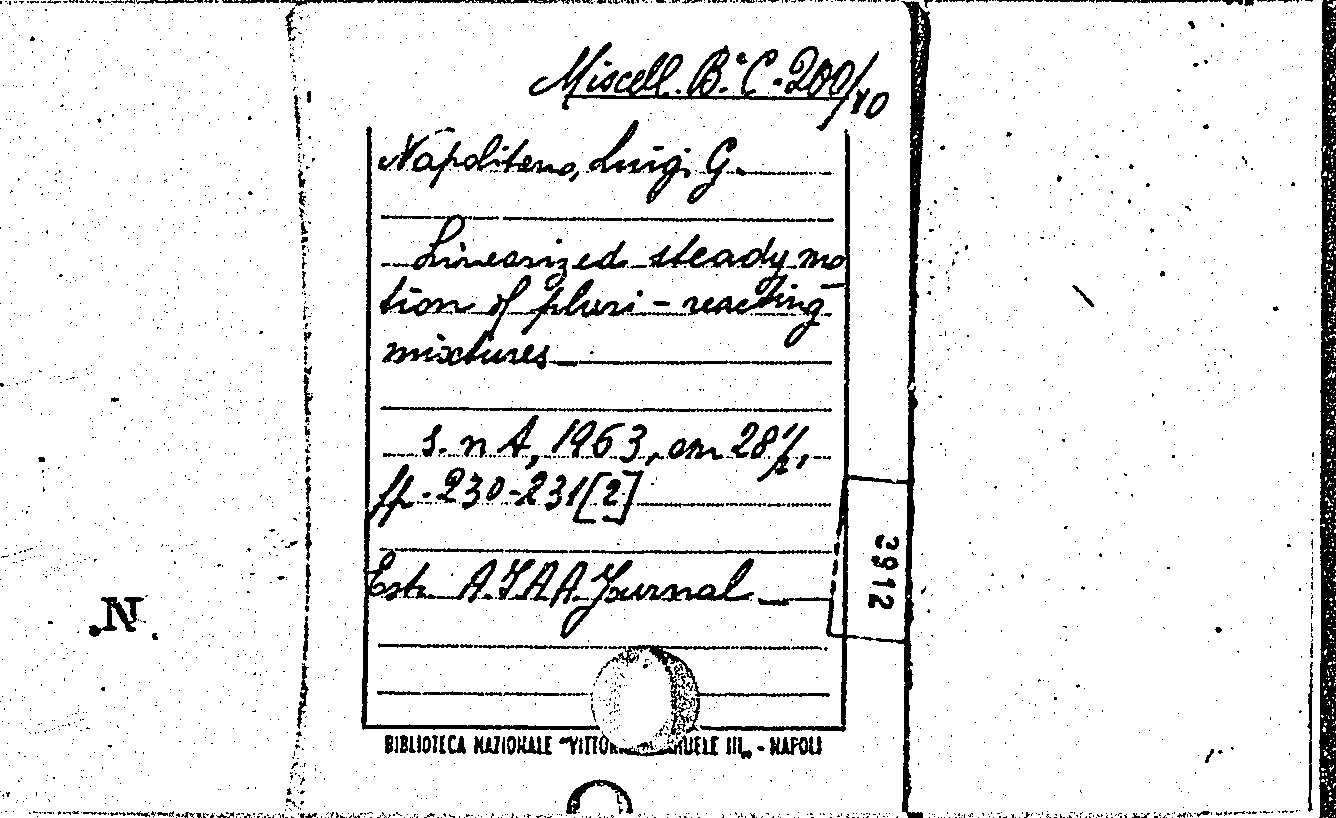 Miscell. B.ª C. 200/10
Napolitano, Luigi G.
Linearized steady mo
tion of pluri - reacting
mixtures
s. n. t., 1963, cm 28½,
pp. 230-231 [2]
Estr. A.I.A.A. Journal
3912
N.
BIBLIOTECA NAZIONALE "VITTORIO EMANUELE III„ - NAPOLI